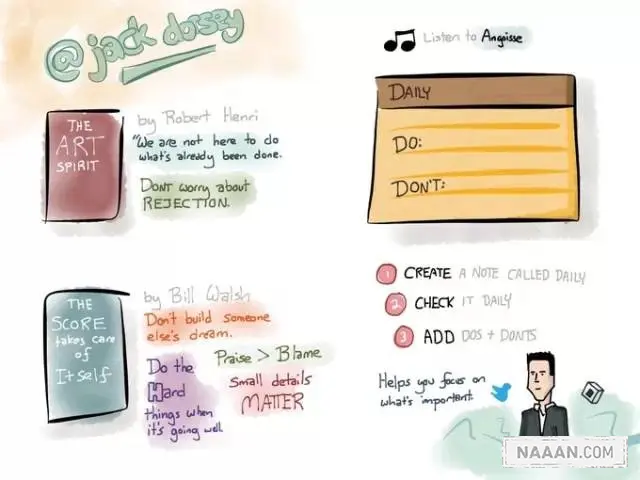 @jack dorsey
THE
ART
SPIRIT
by Robert Henri
"We are not here to do
what's already been done.
DONT worry about
REJECTION.
THE
SCORE
takes care
of
ItSelf
by Bill Walsh
Don't build someone
else's dream.
Do the
Hard
things when
it's going well
Praise > Blame
Small details
MATTER
Listen to Angoisse
DAILY
DO:
DON'T:
1 CREATE A NOTE CALLED DAILY
2 CHECK IT DAILY
3 ADD DOS + DONTS
Helps you focus on
what's important.
NAAAN.COM